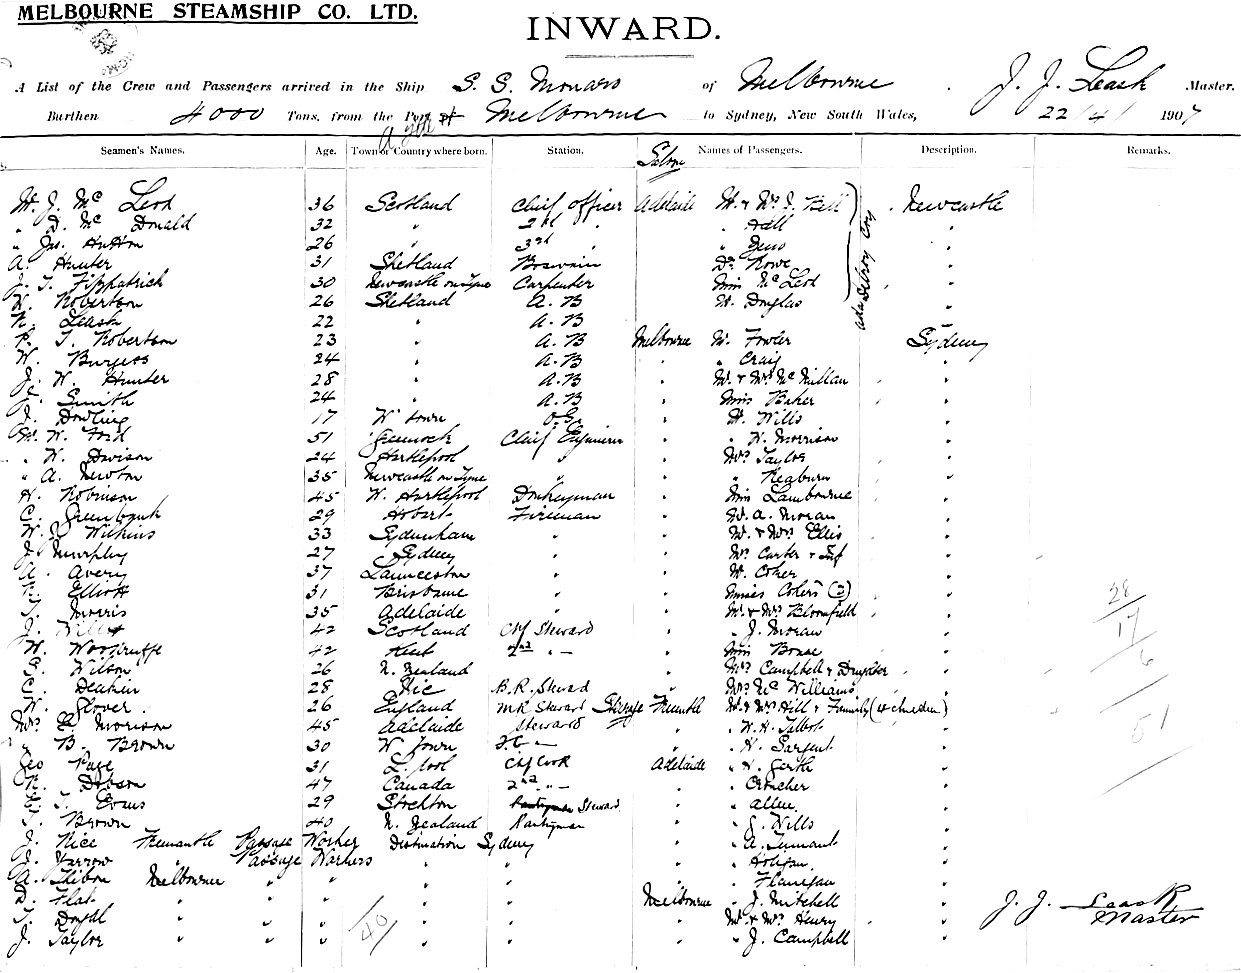 MELBOURNE STEAMSHIP CO. LTD.
INWARD.
A List of the Crew and Passengers arrived in the Ship S. S. Monaro of Melbourne . J. J. Leask Master.
Burthen 4000 Tons, from the Port of Melbourne to Sydney, New South Wales, 22/4/1907
Seamen's Names. Age. Town or Country where born. Station. Names of Passengers. Description. Remarks.
Saloon
W. J. Mc Leod 36 Scotland Chief officer Adelaide Mr & Mrs J. Bell Newcastle
" D. Mc Donald 32 " 2nd " " Hall "
" Jas. Hutton 26 " 3rd " "
A. Hunter 31 Shetland Boswain Dr Rowe "
J. T. Fizpatrick 30 Newcastle on Tyne Carpenter Miss Mc Leod "
W. Robertson 26 Shetland A. B Mr Douglas "
R. Leask 22 " A. B
R. T. Robertson 23 " A. B Melbourne Mr Fowler Sydney
W. Burgess 24 " A. B " " Craig "
J. W. Hunter 28 " A. B " Mr & Mrs Mc Millan "
J. Smith 24 " A. B " Miss Baker "
J. Dowling 17 W' town O.S. " Mr Wills "
M. W. Ford 51 Greenock Chief Engineer " " W. Morrison "
" W. Davison 24 Hartlepool " " Mrs Taylor "
" A. Newton 35 Newcastle on Tyne " " " Reaburn "
H. Robinson 45 W. Hartlepool Donkeyman " Miss Lambourne "
C. Greenbank 29 Hobart Fireman " Mr A. Moran "
W. J. Wilkins 33 Sydenham " " Mr & Mrs Ellis "
J. Murphy 27 Sydney " " Mrs Carter & Inf "
A. Avery 37 Launceston " " Mr Coker "
R. Elliott 31 Brisbane " " Misses Cokers (2) "
T. Morris 35 Adelaide " " Mr & Mrs Bloomfield "
J. Wills 42 Scotland Chf Steward " " J. Moran "
W. Woodruffe 42 Kent 2nd " " Miss "
E. Wilson 26 N. Zealand " Mrs Campbell & Daughter "
C. Deakin 28 Vic B.R. Steward " Mrs Mc Williams "
W. Glover 26 England M R Steward Steerage Fremantle Mr & Mrs Hill & Family "
Mrs E. Morrison 45 Adelaide Steward " " W. H. Talbot "
" B. Brown 30 W Town " " H. Sargent "
Geo Page 31 L. pool Chf Cook Adelaide " "
R. Dobson 47 Canada 2nd " " " Croucher "
E. T. Evans 29 Stockton Pantryman Steward " " Allen "
T. Brown 40 N. Zealand Pantryman " " J. Wills "
J. Nice Fremantle Passage Worker Destination Sydney " " A. Tennant "
J. Yarrow " Passage Workers " " " " Holigan "
A. Melbourne " " " " " " Flanigan "
D. " " " " " Melbourne " J. Mitchell "
T. " " " " " " Mr & Mrs Henry "
J. Taylor " " " " " " " J. Campbell "
Adelaide Coy
28
17
6
51
40
J. J. Leask
Master